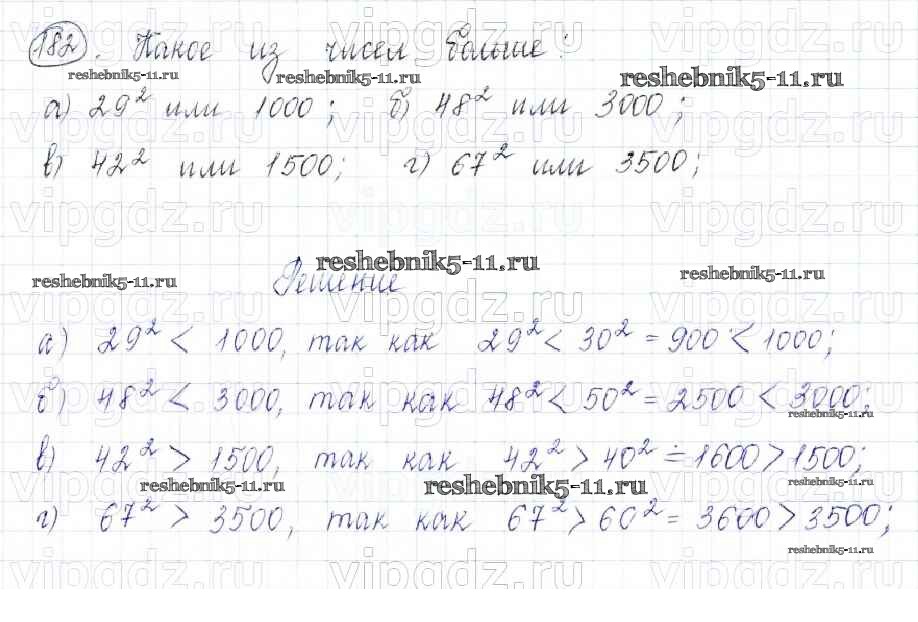 182. Какое из чисел больше:
reshebnik5-11.ru reshebnik5-11.ru reshebnik5-11.ru
а) 29² или 1000; б) 48² или 3000;
в) 42² или 1500; г) 67² или 3500;
vipgdz.ru vipgdz.ru vipgdz.ru
reshebnik5-11.ru reshebnik5-11.ru reshebnik5-11.ru
Решение
vipgdz.ru vipgdz.ru vipgdz.ru
а) 29² < 1000, так как 29² < 30² = 900 < 1000;
б) 48² < 3000, так как 48² < 50² = 2500 < 3000;
reshebnik5-11.ru
в) 42² > 1500, так как 42² > 40² = 1600 > 1500;
reshebnik5-11.ru reshebnik5-11.ru reshebnik5-11.ru
г) 67² > 3500, так как 67² > 60² = 3600 > 3500;
reshebnik5-11.ru
vipgdz.ru vipgdz.ru vipgdz.ru